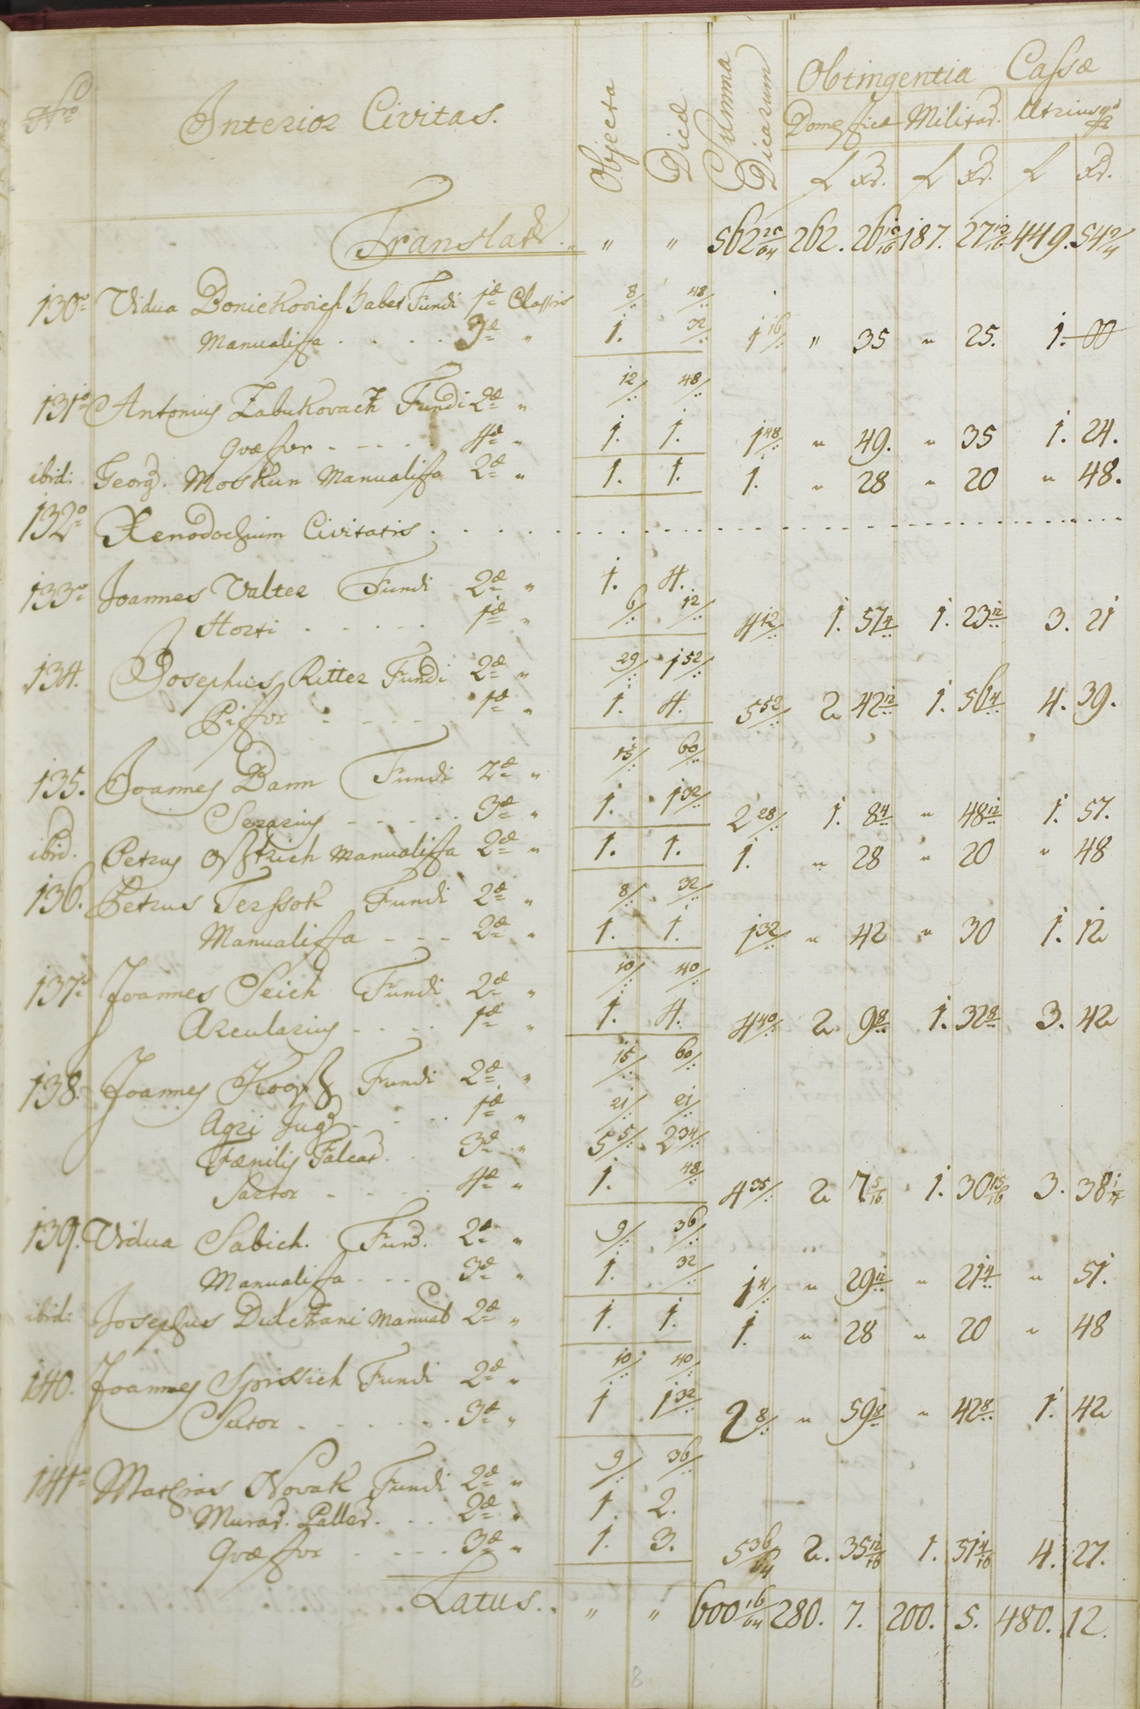 Nro Interior Civitas. Objecta Dicæ Summa Dicarum Obtingentia Cassæ
Domesticæ Militar. Utriusq
f xr. f xr. f xr.
Translatũ " " 562 20/64 262. 26 187. 27 449. 54 2/4
130 Vidua habet Fundi 1æ Classis 8/ 48/
Manualista 3æ " 1. 32/ 1 16/ " 35 " 25. 1. 00
131 Antonius Zabukovach Fundi 2æ " 12/ 48/
Quæstor 4æ " 1. 1. 1 48/ " 49. " 35 1. 24.
ibid: Georg. Moskun Manualista 2æ " 1. 1. 1. " 28 " 20 " 48.
132 Xenodochium Civitatis
133 Joannes Valter Fundi 2æ " 1. 4.
Horti 1æ " 6/ 12/ 4 12/ 1. 57 4 1. 23 12 3. 21
134. Josephus Ritter Fundi 2æ " 29/ 1 52/
Pistor 1æ " 1. 4. 5 52/ 2 42 12 1. 56 4 4. 39.
135. Joannes Bann Fundi 2æ " 15/ 60/
Serarius 3æ " 1. 1 32/ 2 28/ 1. 8 4 " 48 12 1. 57.
ibid. Petrus Manualista 2æ " 1. 1. 1. " 28 " 20 " 48
136. Petrus Terssok Fundi 2æ " 8/ 32/
Manualista 2æ " 1. 1. 1 32/ " 42 " 30 1. 12
137 Joannes Seich Fundi 2æ " 10/ 40/
Arcularius 1æ " 1. 4. 4 40/ 2. 9 8 1. 32 8 3. 42
138. Joannes Fundi 2æ " 15/ 60/
Agri Jug. 1æ " 21/ 21/
Fænilis Falcat. 3æ " 5 5/ 2 34/
Sartor 4æ " 1. 48/ 4 35/ 2 7 5/16 1. 30 15/16 3. 38 1/4
139. Vidua Sabich. Fund. 2æ " 9/ 36/
Manualista 3æ " 1. 32/ 1 4/ " 29 12 " 21 4 " 51.
ibid: Josephus Manual 2æ " 1. 1. 1. " 28 " 20 " 48
140. Joannes Sprissich Fundi 2æ " 10/ 40/
Sutor 3æ " 1 1 32/ 2 8/ " 59 8 " 42 8 1. 42
141 Mathias Novak Fundi 2æ " 9/ 36/
Murar. Pallar. 2æ " 1. 2.
Quæstor 3æ " 1. 3. 5 36/64 2. 35 12/16 1. 51 4/16 4. 27.
Latus. " " 600 16/64 280. 7. 200. 5. 480. 12.